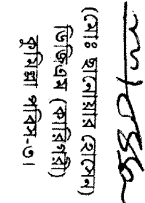 (মোঃ ছানোয়ার হোসেন)
ডিজিএম (কারিগরী)
কুমিল্লা পবিস-৩।